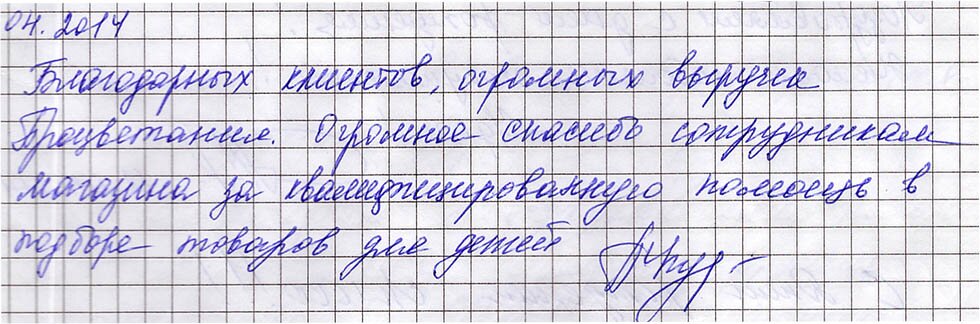 04.2014
Благодарных клиентов, огромных выручек
Процветания. Огромное спасибо сотрудникам
магазина за квалифицированную помощь в
подборе товаров для детей